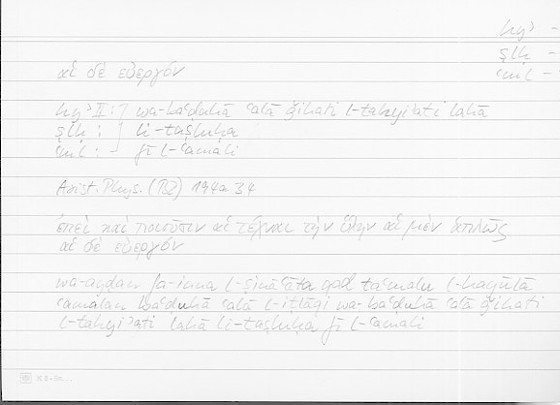 hyʾ –
ṣlḥ –
ʿml –
αἱ δὲ εὐεργόν
hyʾ II : ] wa-baʿḍuhā ʿalā ǧihati l-tahyiʾati lahā
ṣlḥ : ] li-taṣluḥa
ʿml : ] fī l-ʿamali
Arist. Phys. (II 2) 194a 34
ἐπεὶ καὶ ποιοῦσιν αἱ τέχναι τὴν ὕλην αἱ μὲν ἁπλῶς
αἱ δὲ εὐεργόν
wa-ayḍan fa-inna l-ṣināʿāta qad taʿmalu l-hayūlā
ʿamalan baʿḍuhā ʿalā l-iṭlāqi wa-baʿḍuhā ʿalā ǧihati
l-tahyiʾati lahā li-taṣluḥa fī l-ʿamali